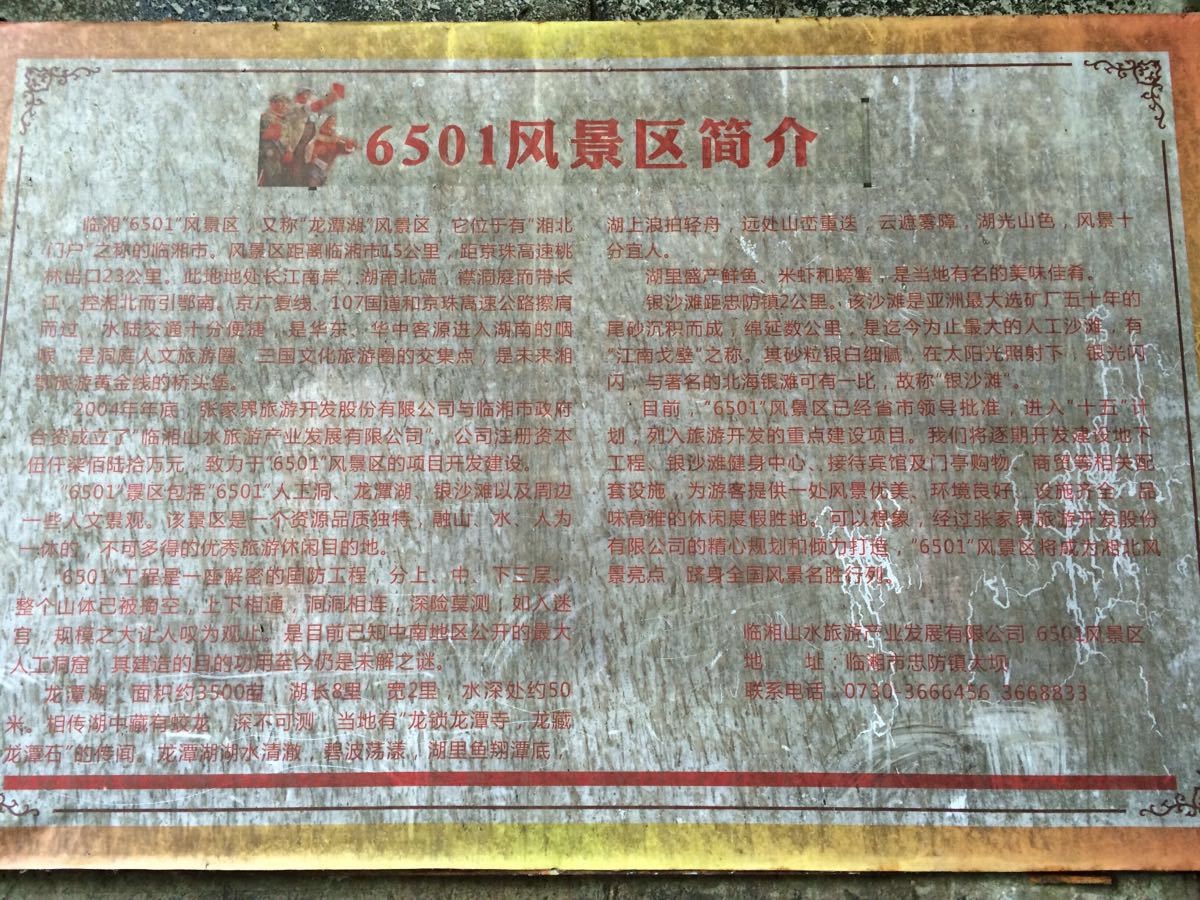 6501风景区简介
临湘“6501”风景区，又称“龙潭湖”风景区，它位于有“湘北
门户”之称的临湘市。风景区距离临湘市15公里，距京珠高速桃
林出口23公里。此地地处长江南岸，湖南北端，襟洞庭而带长
江，控湘北而引鄂南。京广复线、107国道和京珠高速公路擦肩
而过，水陆交通十分便捷，是华东、华中客源进入湖南的咽
喉，是洞庭人文旅游圈、三国文化旅游圈的交集点，是未来湘
鄂旅游黄金线的桥头堡。
2004年年底，张家界旅游开发股份有限公司与临湘市政府
合资成立了“临湘山水旅游产业发展有限公司”。公司注册资本
伍仟柒佰陆拾万元，致力于“6501”风景区的项目开发建设。
“6501”景区包括“6501”人工洞、龙潭湖、银沙滩以及周边
一些人文景观。该景区是一个资源品质独特，融山、水、人为
一体的，不可多得的优秀旅游休闲目的地。
“6501”工程是一座解密的国防工程，分上、中、下三层。
整个山体已被掏空，上下相通，洞洞相连，深险莫测，如入迷
宫，规模之大让人叹为观止。是目前已知中南地区公开的最大
人工洞窟，其建造的目的功用至今仍是未解之谜。
龙潭湖，面积约3500亩，湖长8里，宽2里，水深处约50
米。相传湖中藏有蛟龙，深不可测，当地有“龙锁龙潭寺，龙藏
龙潭石”的传闻。龙潭湖湖水清澈，碧波荡漾，湖里鱼翔潭底，
湖上浪拍轻舟，远处山峦重迭，云遮雾障，湖光山色，风景十
分宜人。
湖里盛产鲜鱼、米虾和螃蟹，是当地有名的美味佳肴。
银沙滩距忠防镇2公里。该沙滩是亚洲最大选矿厂五十年的
尾砂沉积而成，绵延数公里，是迄今为止最大的人工沙滩，有
“江南戈壁”之称。其砂粒银白细腻，在太阳光照射下，银光闪
闪，与著名的北海银滩可有一比，故称“银沙滩”。
目前，“6501”风景区已经省市领导批准，进入“十五”计
划，列入旅游开发的重点建设项目。我们将逐期开发建设地下
工程、银沙滩健身中心、接待宾馆及门亭购物、商贸等相关配
套设施，为游客提供一处风景优美、环境良好、设施齐全、品
味高雅的休闲度假胜地。可以想象，经过张家界旅游开发股份
有限公司的精心规划和倾力打造，“6501”风景区将成为湘北风
景亮点，跻身全国风景名胜行列。
临湘山水旅游产业发展有限公司 6501风景区
地 址：临湘市忠防镇大坝
联系电话：0730-3666456 3668833